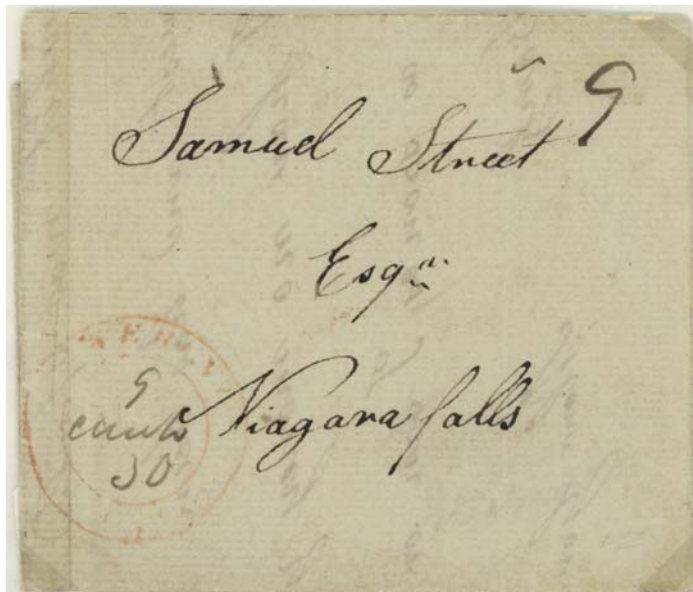 9
Samuel Street
Esqr
Niagara falls
9
30